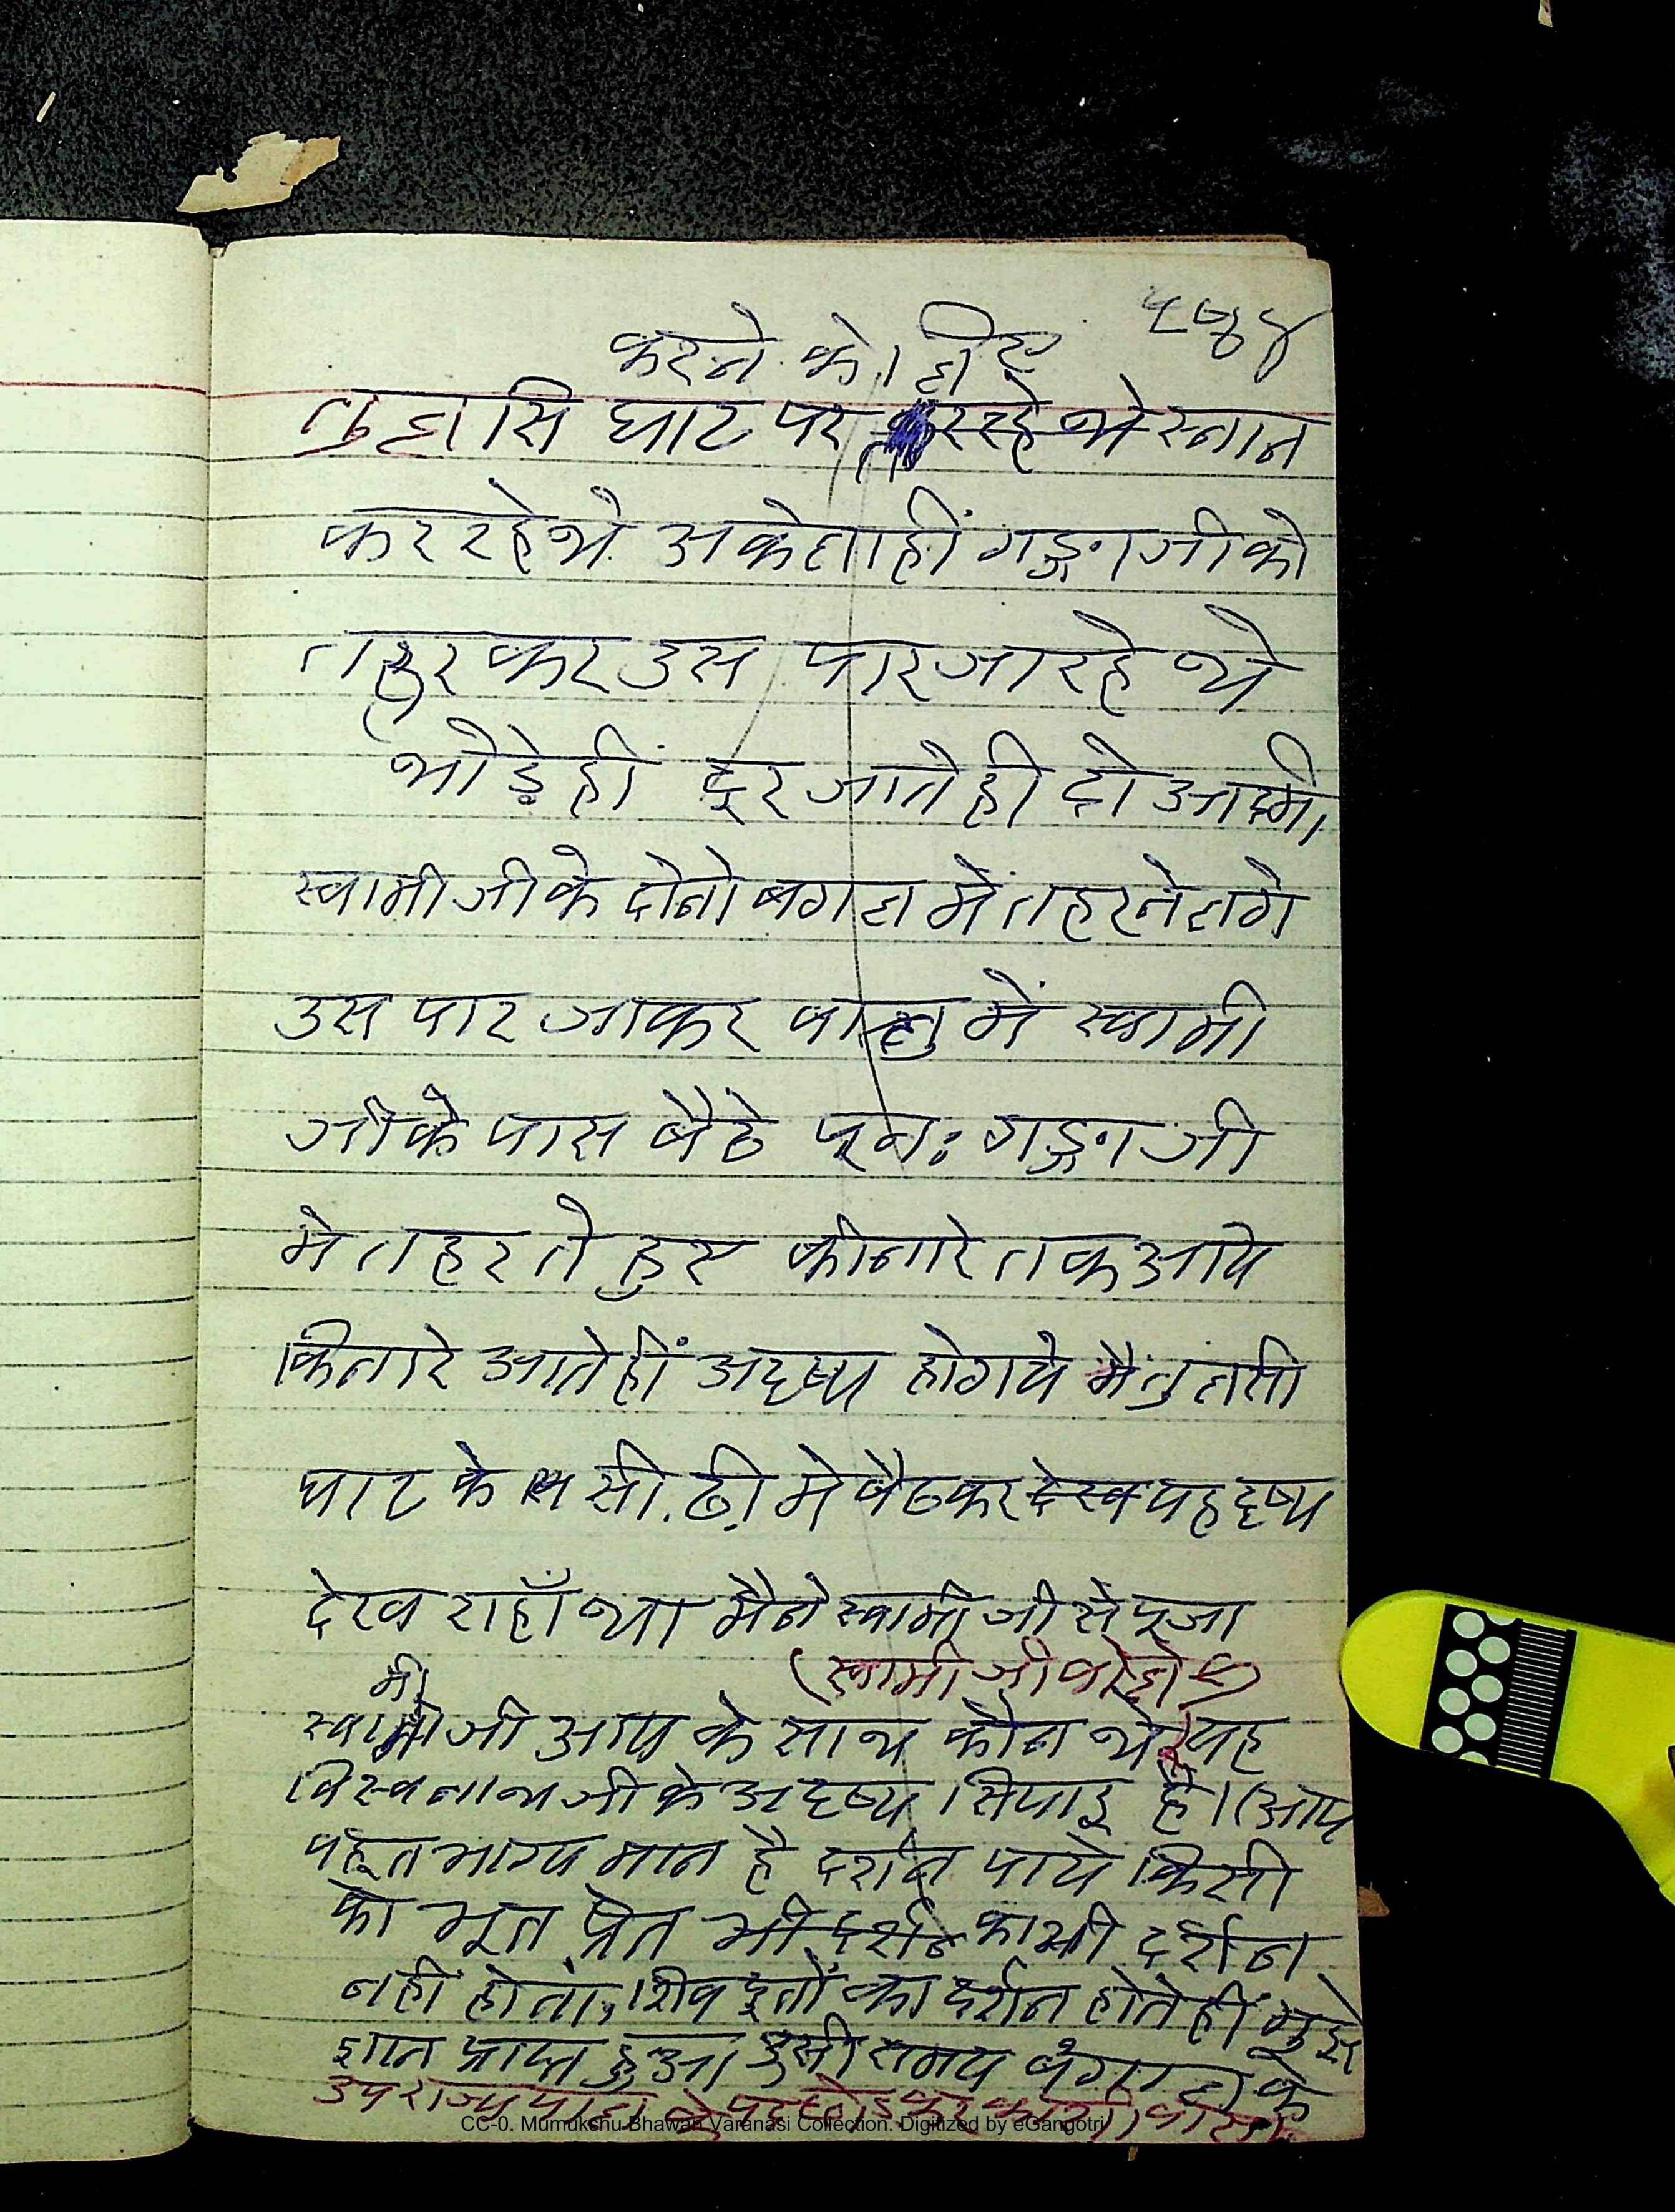 करने के लिए
तुलसि घाट पर कर रहे थे स्नान
कर रहे थे अकेला हीं गङ्गा जी को
तहुर कर उस पार जा रहे थे
थोड़े हीं दूर जाते ही दो आदमी
स्वामी जी के दोनो बगल में तहरने लगे
उस पार जाकर बालु में स्वामी
जी के पास बैठे पून: गङ्गा जी
मे तहरते हुए कीनारे तक आये
किनारे आते हीं अदृष्य हो गये मै तुलसी
घाट के सी.ढी़ मे बैठकर देख यह दृष्य
देख राहाँ था मैने स्वामी जी से पूजा
(स्वामी जी बोले
मी
स्वामी जी आप के साथ कौन थे? यह
विस्वनाथ जी के अदृष्य सिपाइ है। (आप
बहूत भाग्य मान है दर्शन पाये किसी
को भूत प्रेत भी दर्शन का भी दर्शन
नहीं होता, शिव दूतों का दर्शन होते हीं मुझे
ज्ञान प्राप्त हुआ उसी समय बंगाल के
उप राज्यपाल के पद छोडकर काशी वास
CC-0. Mumukshu Bhawan Varanasi Collection. Digitized by eGangotri